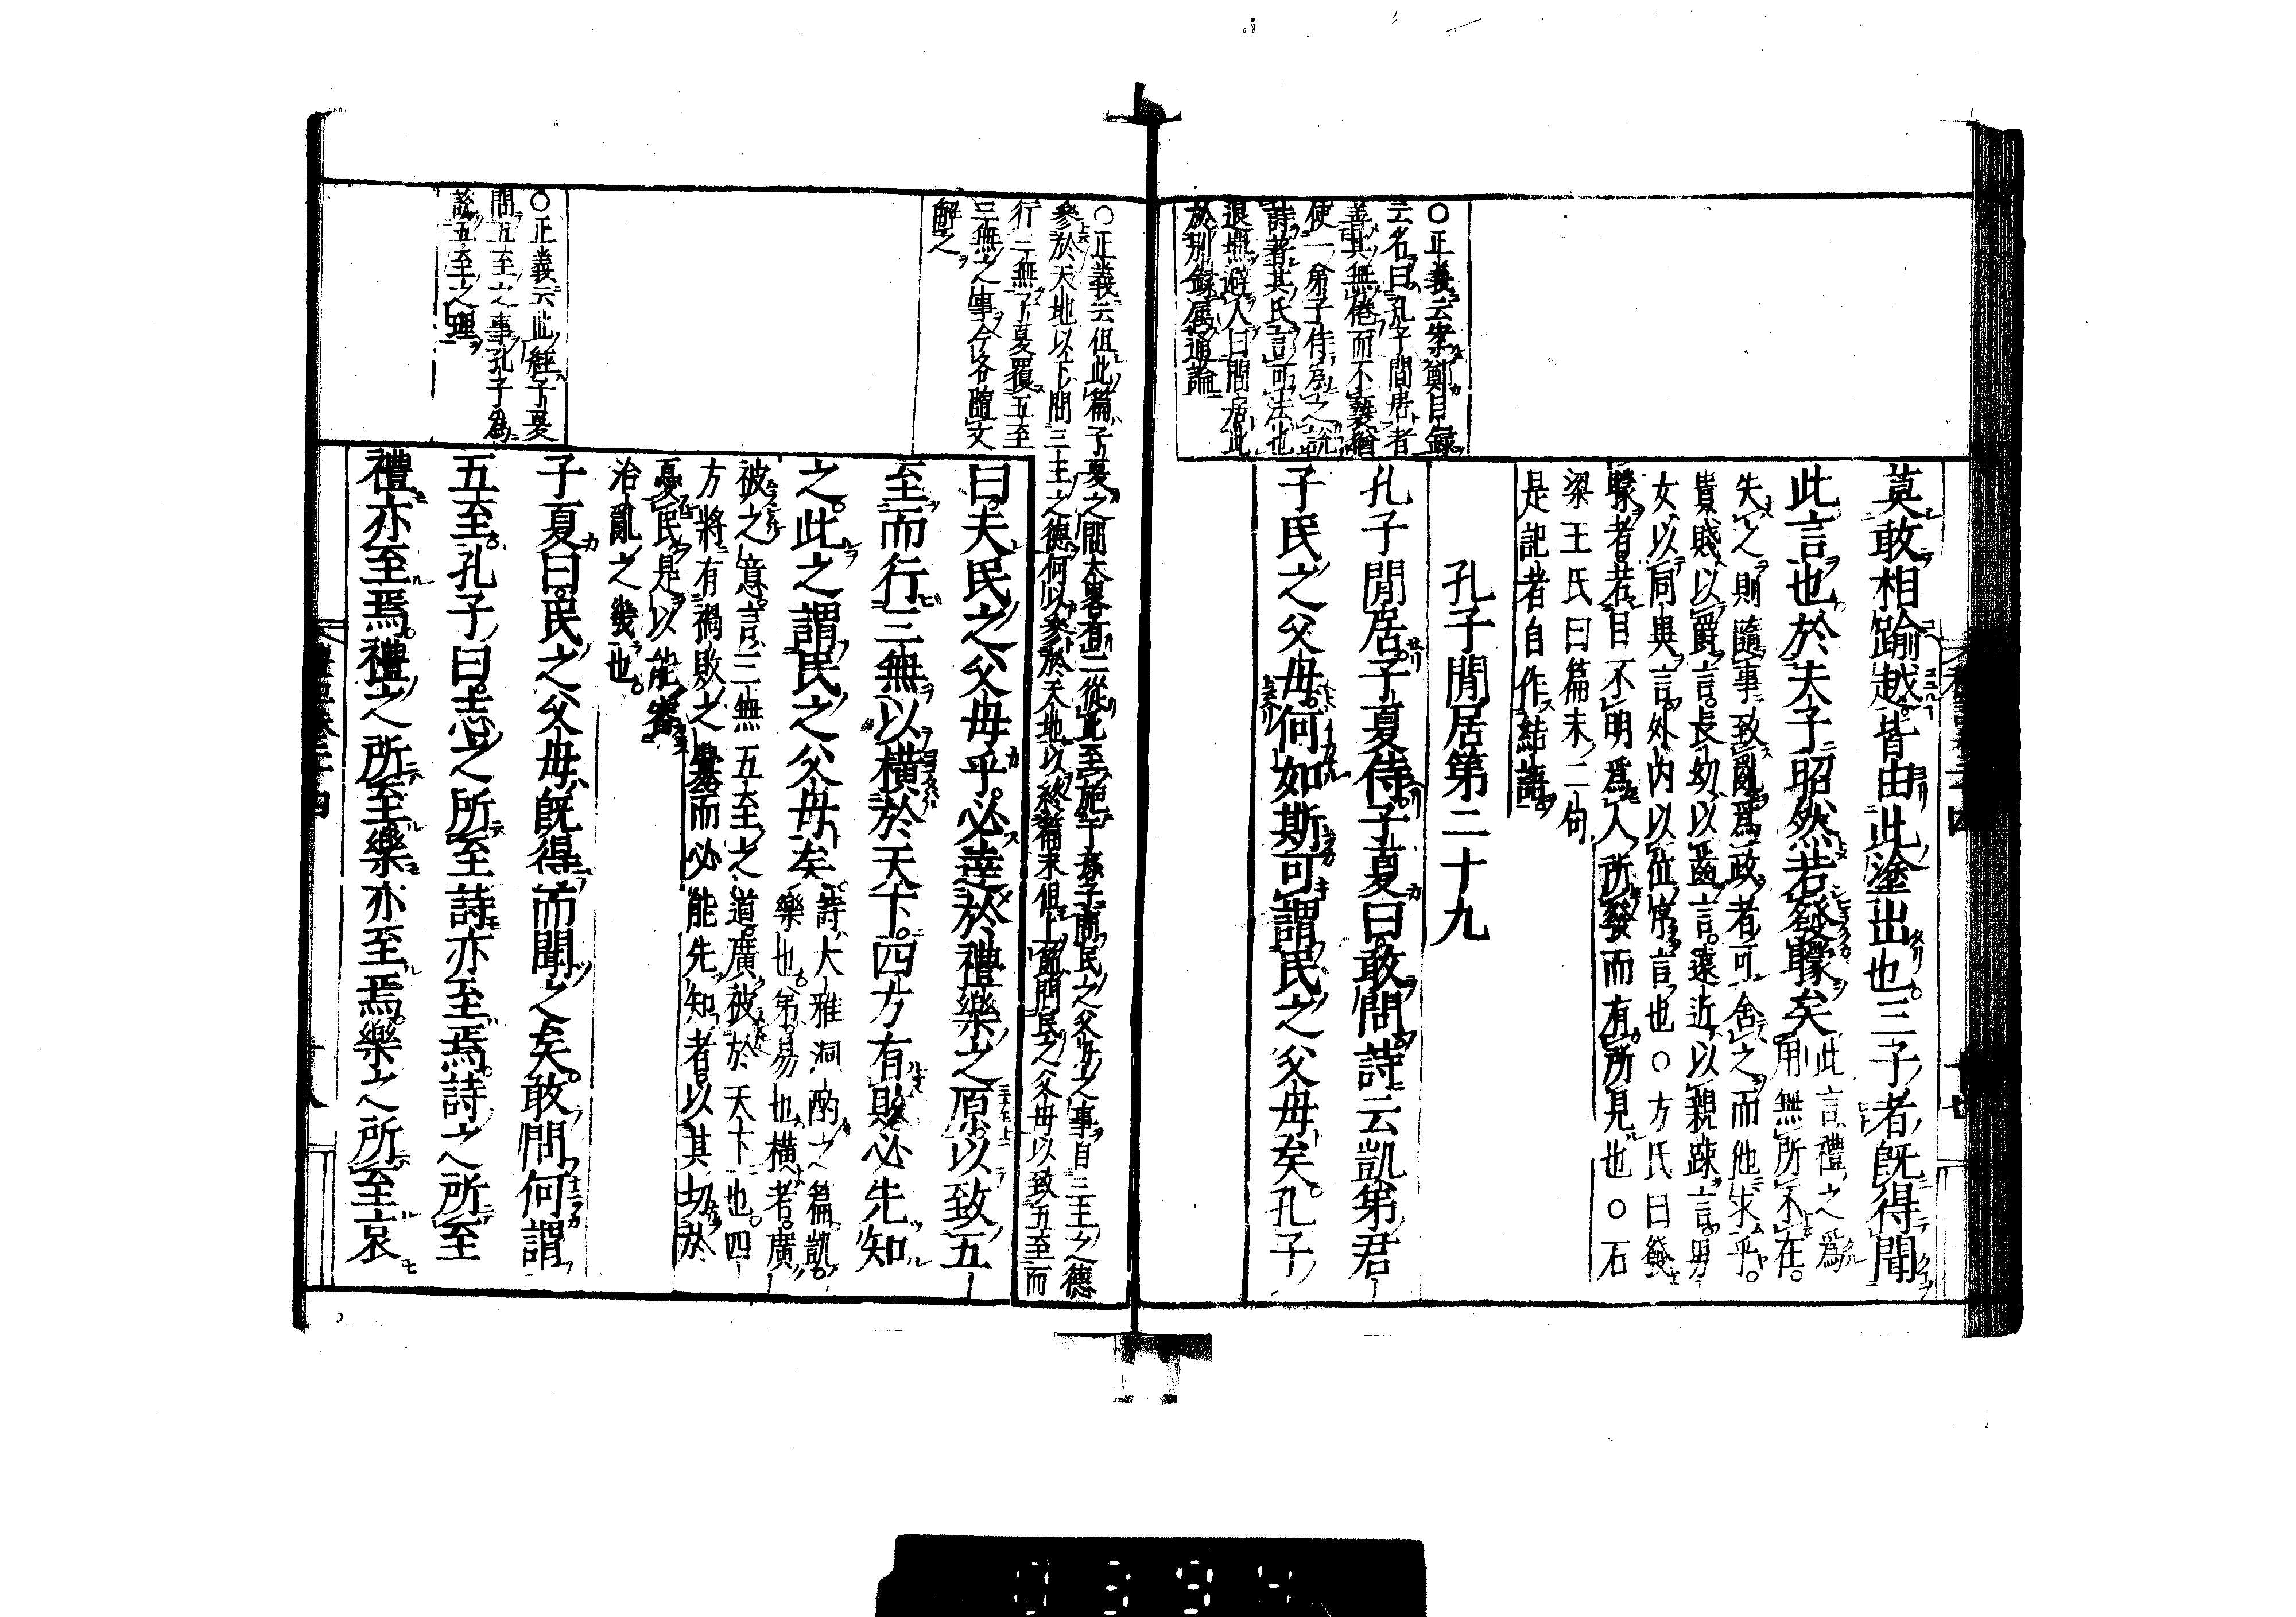 莫敢相踰越皆由此塗出也。三子者既得聞
此言也於夫子昭然若發矇矣
此言禮之爲
用無所不在。
失之則隨事致亂爲政者可舍之而他求乎。
貴賤以爵言。長幼以齒言。遠近以親踈言。男
女以同異言。外内以位序言也○方氏曰發
矇者若目不明爲人所發而有所見也○石
梁王氏曰篇末二句
是記者自作結語。
孔子閒居第二十九
○正義云案鄭目録
云名曰孔子間居者
善其無倦而不褻猶
使一弟子侍爲之說
詩著其氏言可法也
退燕避人曰間居此
於別録屬通論
孔子閒居。子夏侍。子夏曰敢問詩云凱弟君
子民之父母。何如斯可謂民之父母矣。孔子
○正義云但此篇子夏之問大畧有二從此至施于孫子問民之父母之事自三王之德
參於天地以下問三王之德何以參於天地以終篇末但上節問民之父母以致五至而
行三無子夏覆五至
三無之事今各隨文
解之
曰。夫民之父母乎。必達於禮樂之原。以致五
至而行三無以横於天下。四方有敗必先知
之。此之謂民之父母矣
詩大雅泂酌之篇。凱。
樂也。弟。易也。横者。廣
被之意。言三無五至之道。廣被於天下也。四
方將有禍敗之釁而必能先知者。以其切於
憂民是以能審
治亂之幾也。
○正義云此經子夏
問五至之事孔子爲
說五至之理
子夏曰。民之父母既得而聞之矣。敢問何謂
五至。孔子曰。志之所至詩亦至焉。詩之所至
禮亦至焉。禮之所至樂亦至焉。樂之所至哀